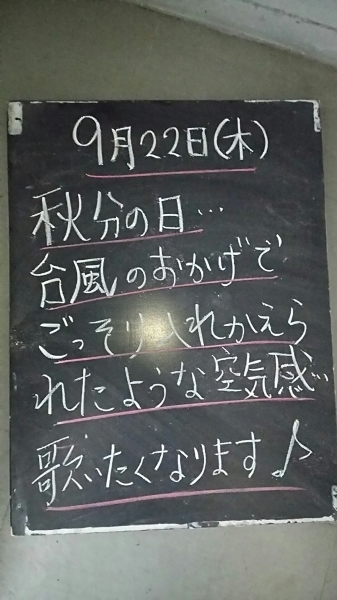 9月22日(木)
秋分の日…
台風のおかげで
ごっそり入れかえら
れたような空気感…
歌いたくなります♪